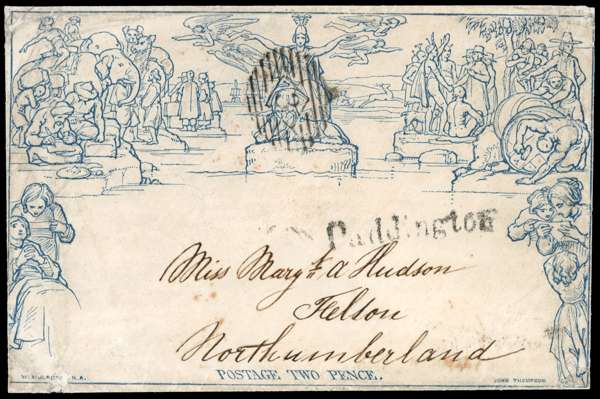 Paddington
Miss Margt A Hudson
Felton
Northumberland
POSTAGE TWO PENCE.
W. MULREADY R.A.
JOHN THOMPSON